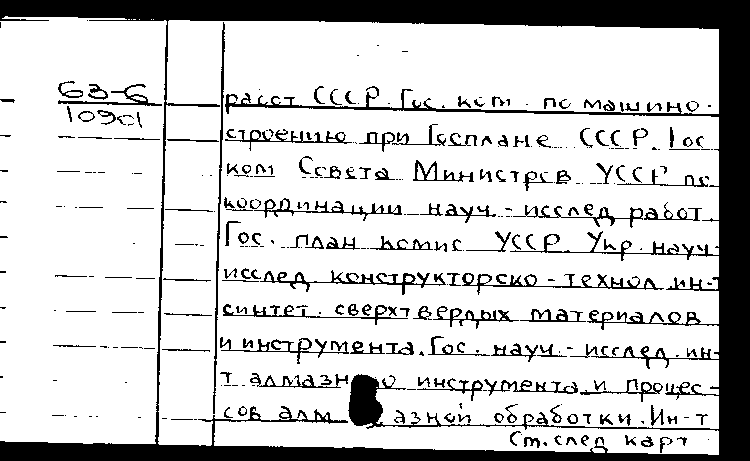 63-6
расст СССР. Гос. ком. по машино-
10901
строению при Госплане СССР. Гос
ком Совета Министров УССР по
координации науч.-исслед работ.
Гос. план комис УССР. Укр. науч-
исслед конструкторско-технол ин-т
синтет. сверхтвердых материалов
и инструмента. Гос. науч.-исслед. ин-
т алмазного инструмента и процес-
сов алмазной обработки. Ин-т
См. след карт